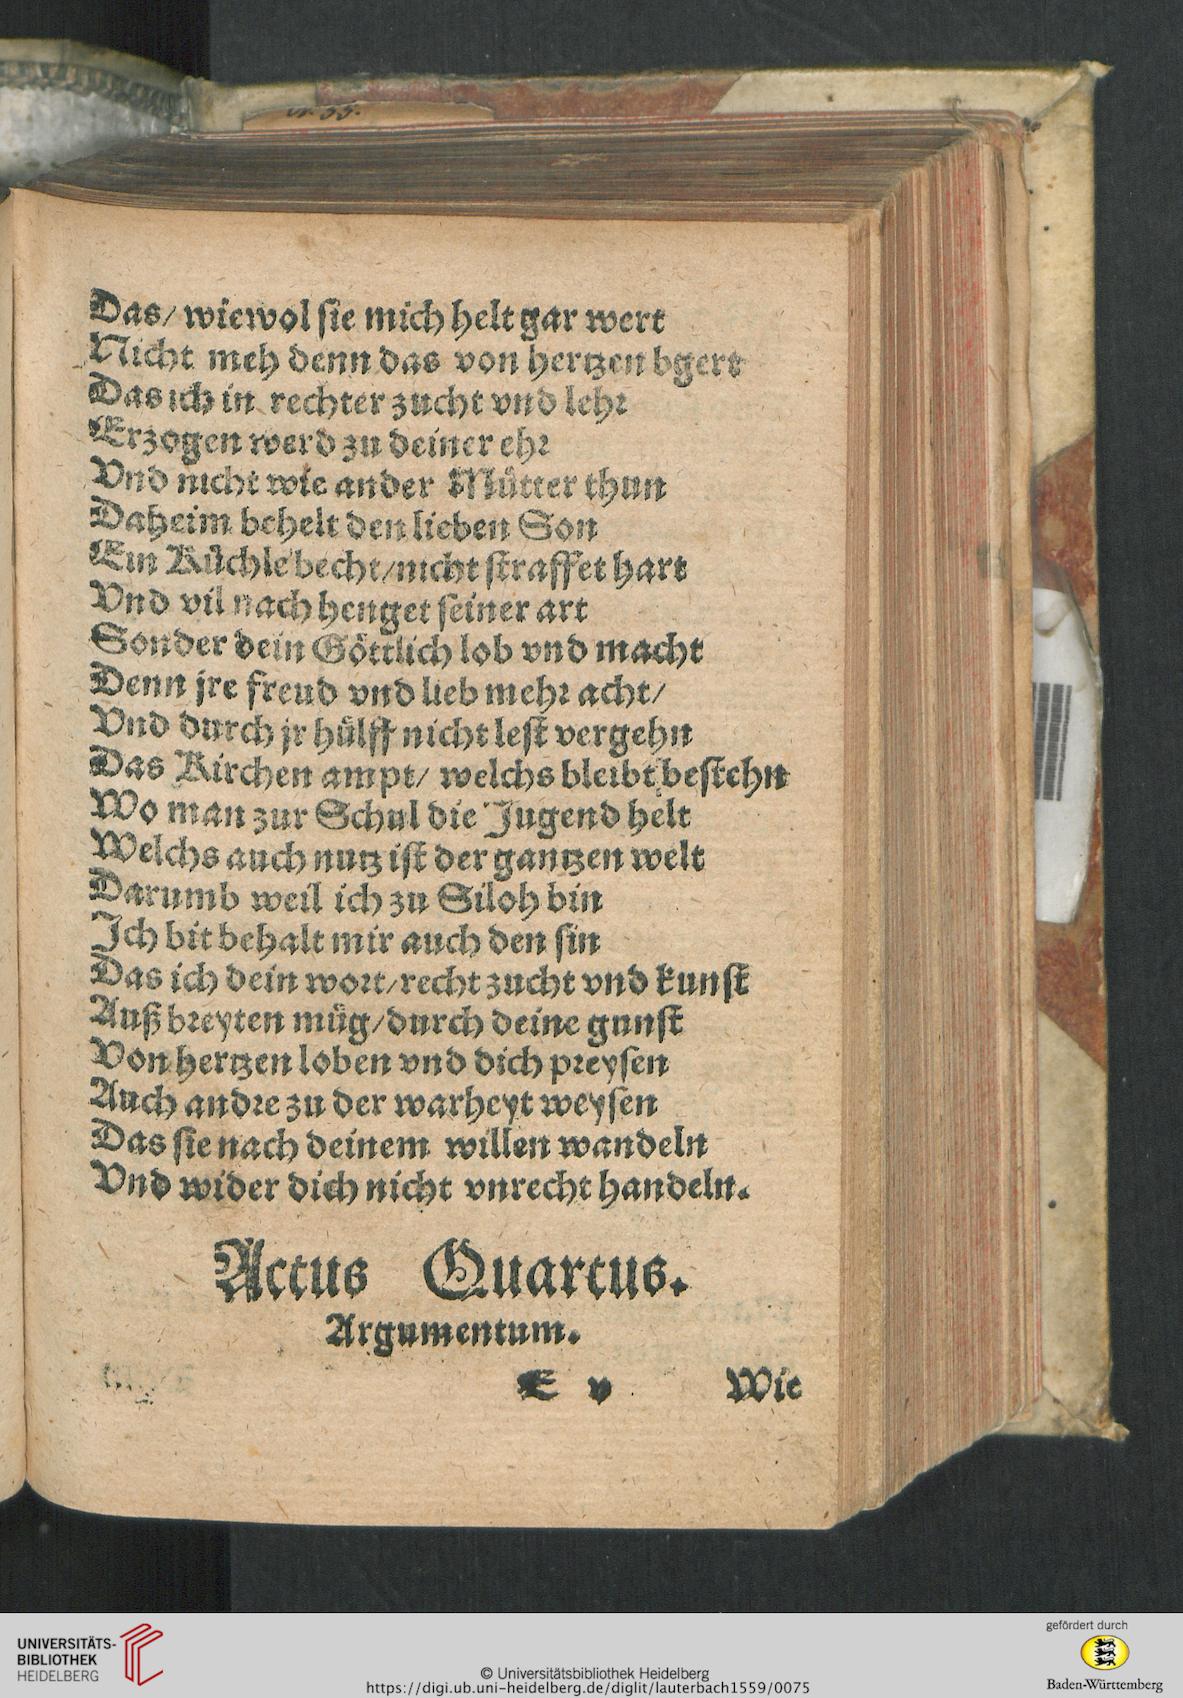 nr. 55.
Das/ wiewol sie mich helt gar wert
Nicht meh denn das von hertzen bgert
Das ich in rechter zucht vnd lehr
Erzogen werd zu deiner ehr
Vnd nicht wie ander Muͤtter thun
Daheim behelt den lieben Son
Ein Kuͤchle becht/nicht straffet hart
Vnd vil nach henget seiner art
Sonder dein Goͤttlich lob vnd macht
Denn jre freud vnd lieb mehr acht/
Vnd durch jr huͤlff nicht lest vergehn
Das Kirchen ampt/ welchs bleibt bestehn
Wo man zur Schul die Jugend helt
Welchs auch nutz ist der gantzen welt
Darumb weil ich zu Siloh bin
Ich bit behalt mir auch den sin
Das ich dein wort/recht zucht vnd kunst
Außbreyten muͤg/durch deine gunst
Von hertzen loben vnd dich preysen
Auch andre zu der warheyt weysen
Das sie nach deinem willen wandeln
Vnd wider dich nicht vnrecht handeln.
Actus Quartus.
Argumentum.
E v Wie
UNIVERSITÄTS-
BIBLIOTHEK
HEIDELBERG
© Universitätsbibliothek Heidelberg
https://digi.ub.uni-heidelberg.de/diglit/lauterbach1559/0075
gefördert durch
Baden-Württemberg